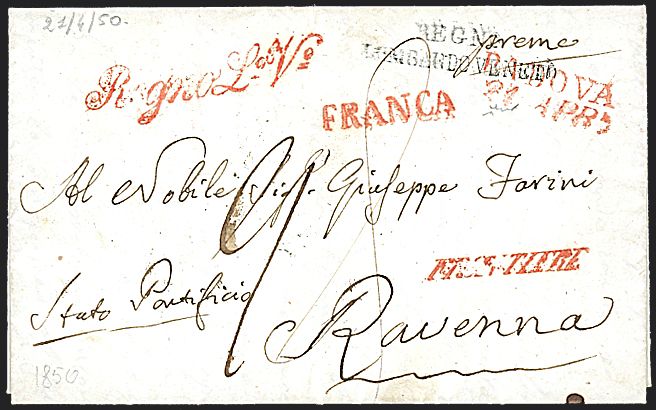 21/4/50.
REGNO
preme
LOMBARDO VENETO
Regno L.do V.o
PADOVA
21 APR.
FRANCA
Al Nobile Sigr. Giuseppe Farini
FRONTIERE
Stato Pontificio
Ravenna
1850